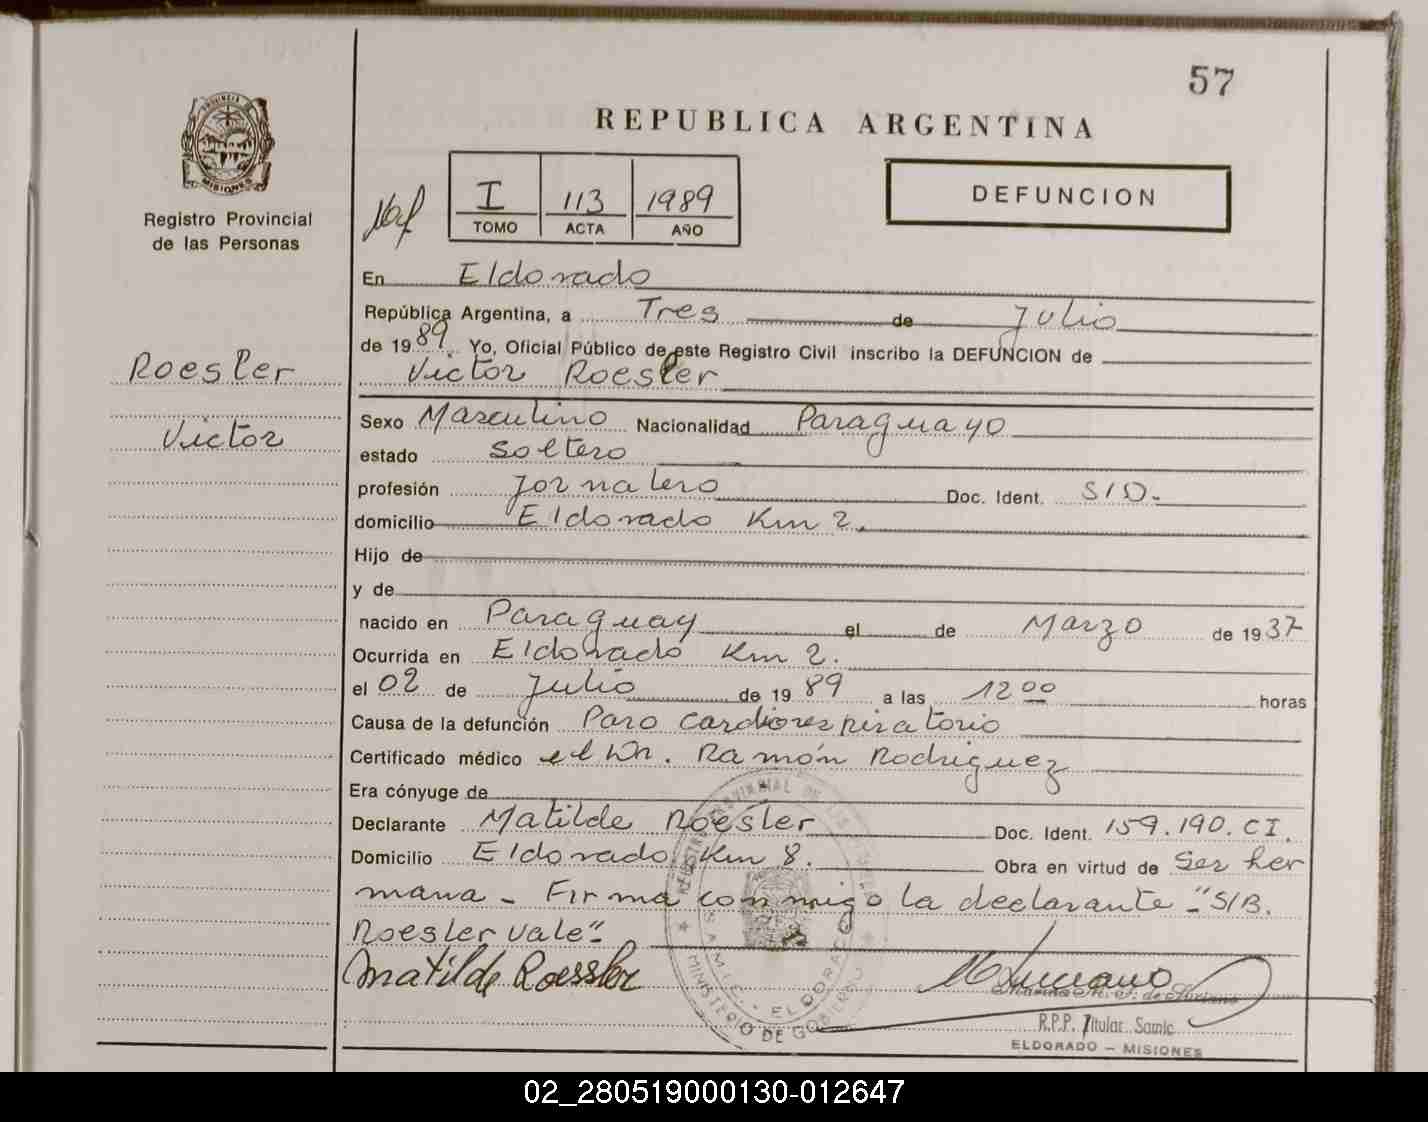 57
REPUBLICA ARGENTINA
PROVINCIA DE
MISIONES
Registro Provincial
de las Personas
I 113 1989
TOMO ACTA AÑO
DEFUNCION
En Eldorado
República Argentina, a Tres de Julio
de 1989. Yo, Oficial Público de este Registro Civil inscribo la DEFUNCION de
Roesler
Victor Roesler
Victor
Sexo Masculino Nacionalidad Paraguayo
estado Soltero
profesión Jornalero Doc. Ident. S/D.
domicilio Eldorado Km 2.
Hijo de
y de
nacido en Paraguay el de Marzo de 1937
Ocurrida en Eldorado Km 2.
el 02 de Julio de 1989 a las 12 00 horas
Causa de la defunción Paro cardiorespiratorio
Certificado médico el Dr. Ramón Rodriguez
Era cónyuge de
Declarante Matilde Roesler Doc. Ident. 159.190. CI.
Domicilio Eldorado Km 8. Obra en virtud de Ser her
mana - Firma conmigo la declarante -"S/B.
Roesler vale"-
Matilde Roessler
R.P.P. Titular Samic
ELDORADO - MISIONES
MINISTERIO DE GOBIERNO
SAMIC. - ELDORADO
02_280519000130-012647